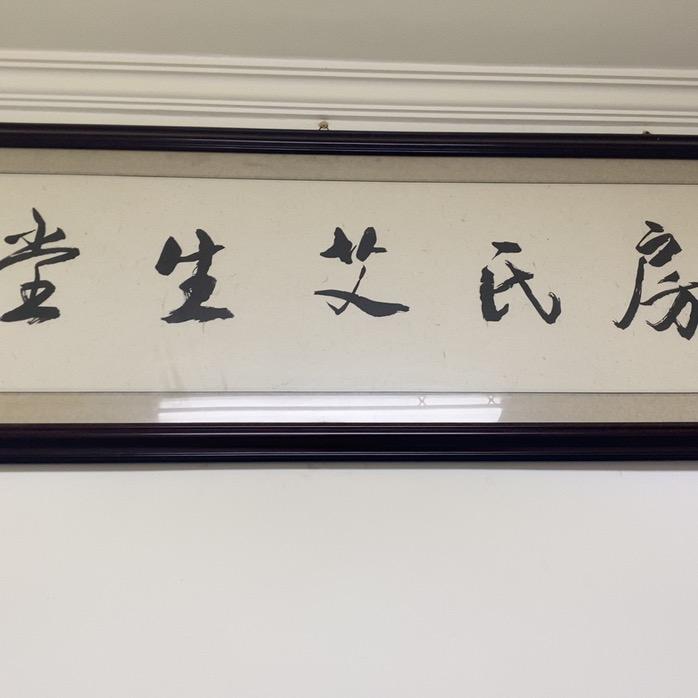 房氏艾生堂